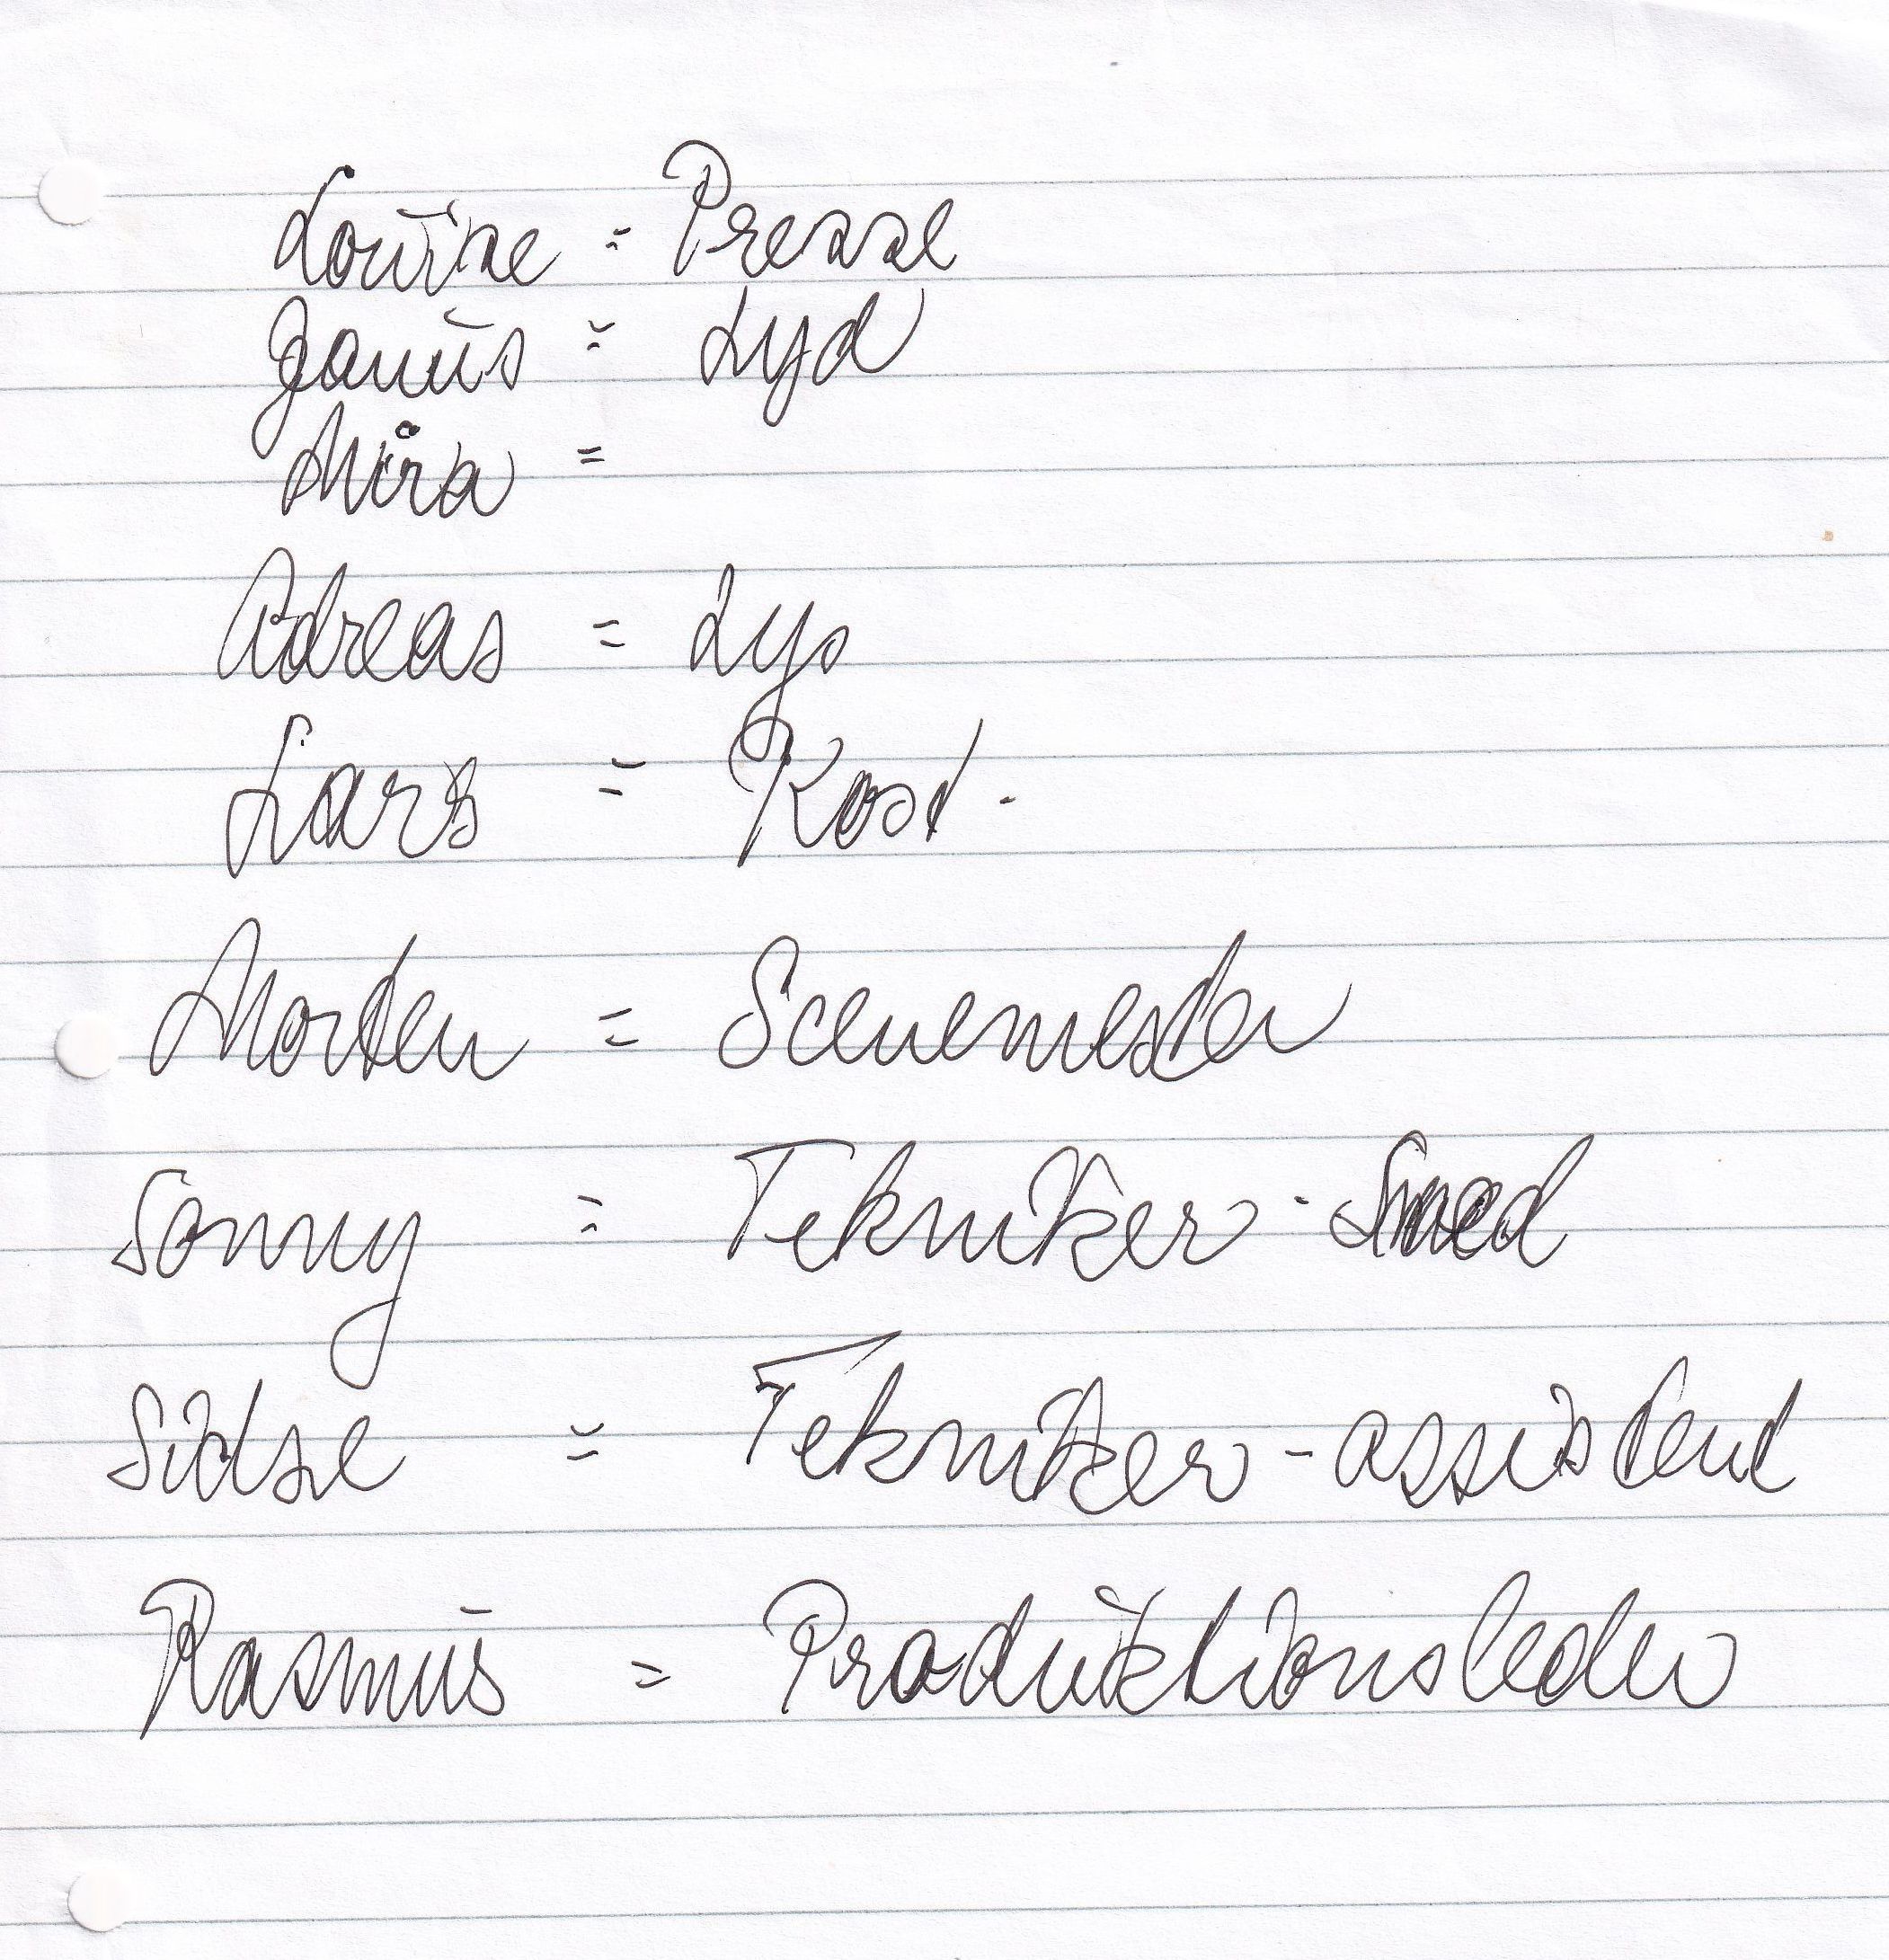 Louise = Presse
Janus = Lyd
Mira =
Adreas = Lys
Lars = Kost.
Morten = Scenemester
Sonny = Tekniker-Smed
Sidse = Tekniker-assistent
Rasmus = Produktionsleder